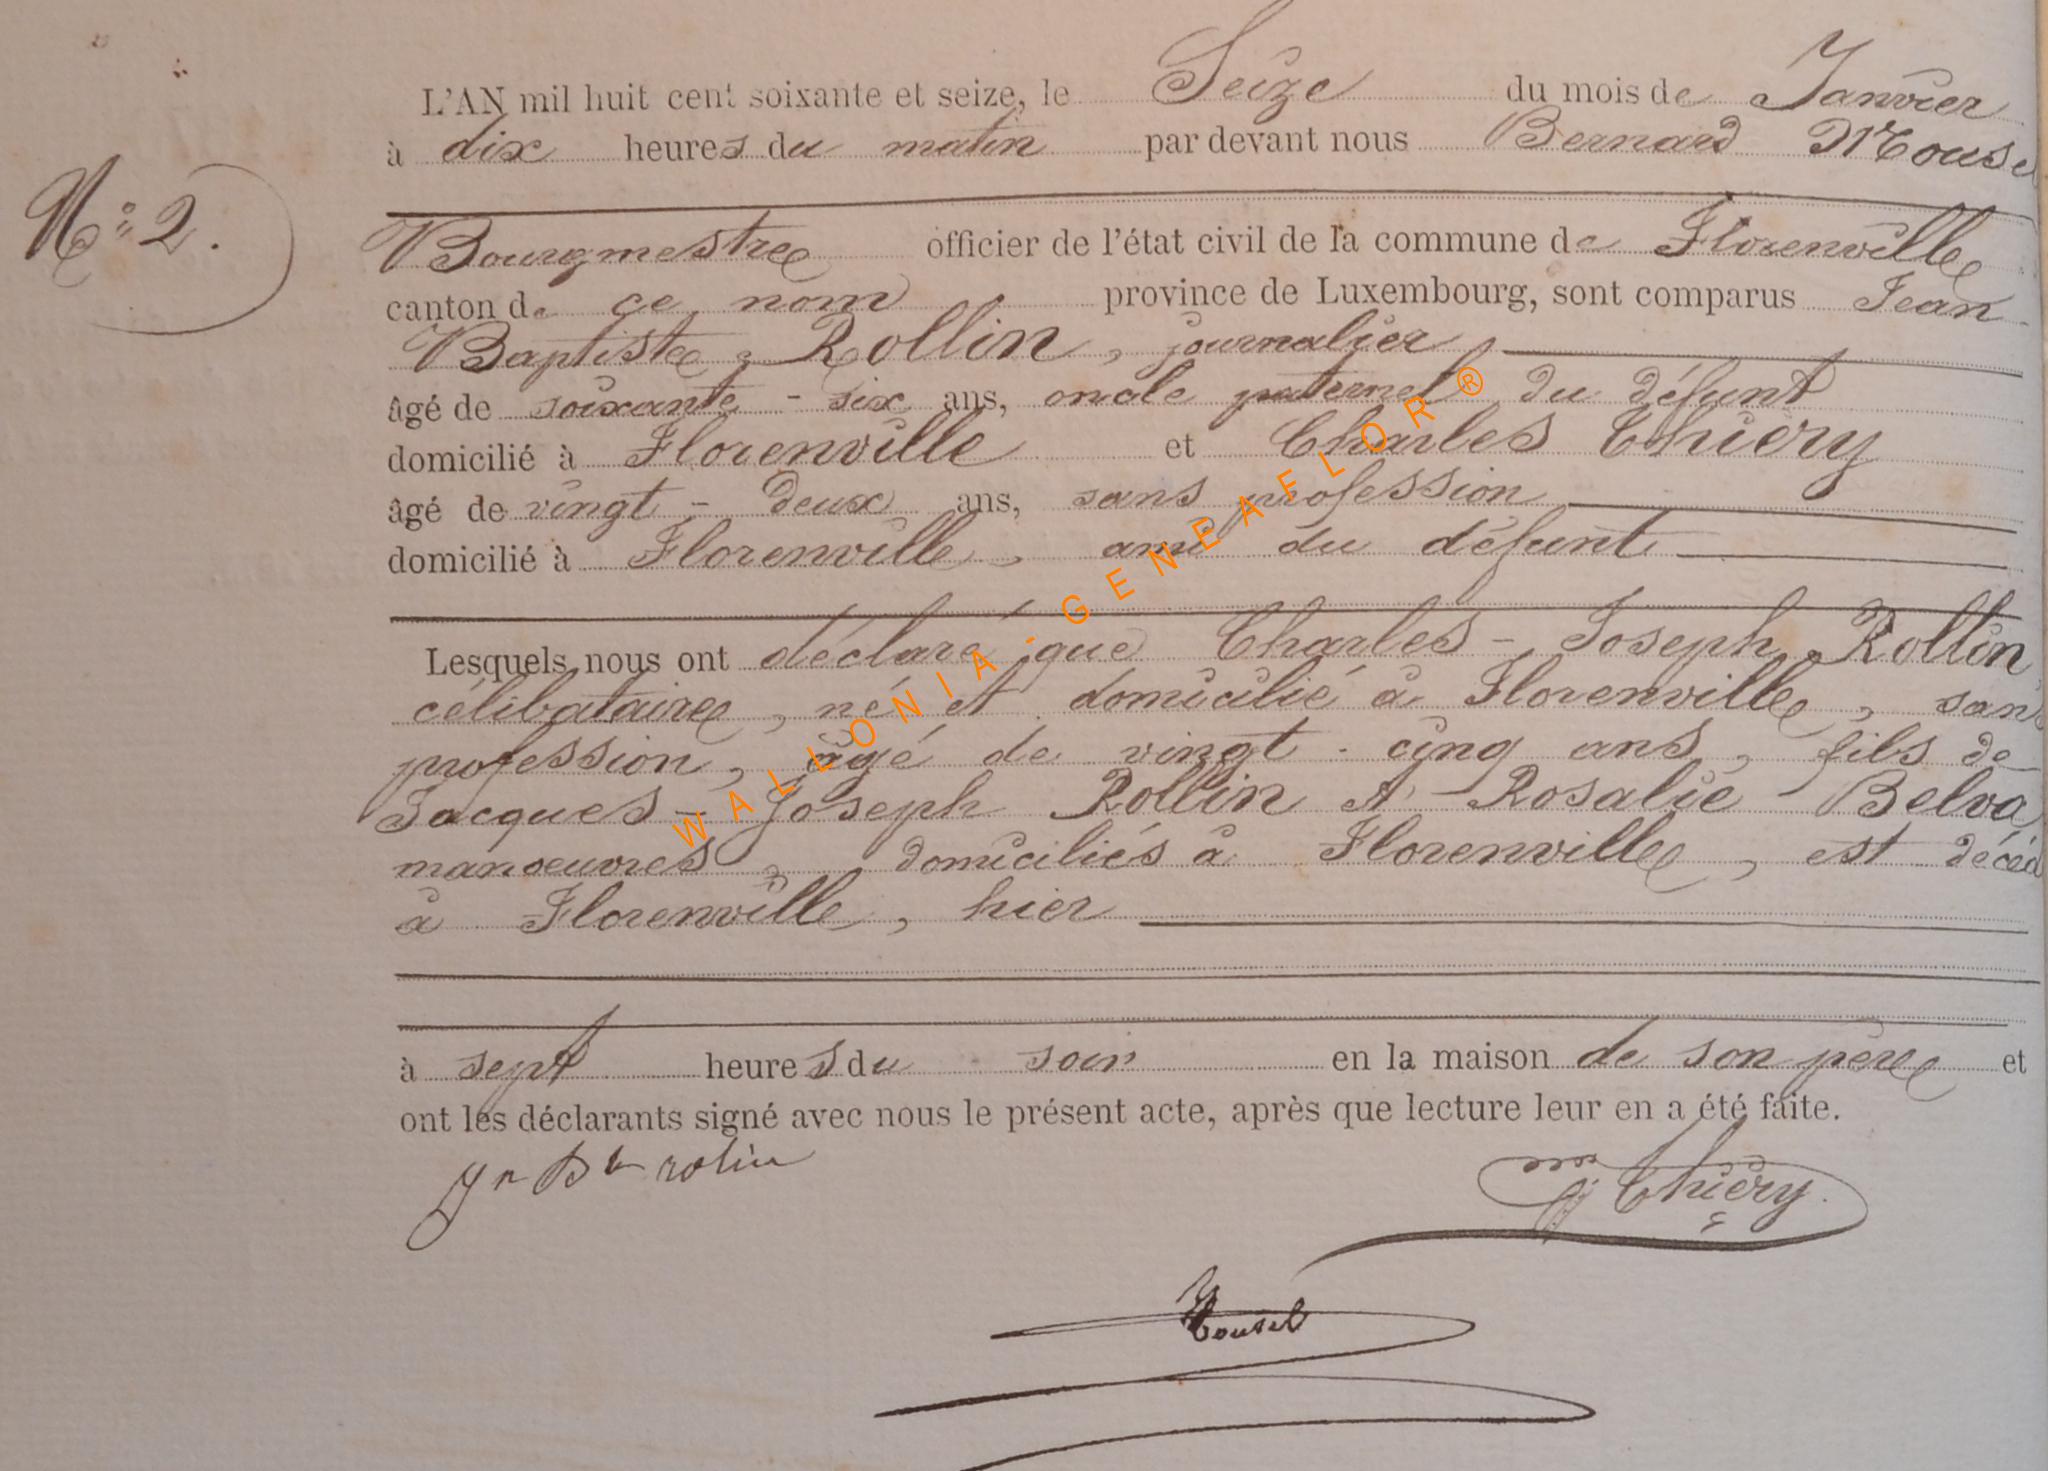 L'AN mil huit cent soixante et seize, le Seize du mois de Janvier
à dix heures du matin par devant nous Bernard
N° 2.
Bourgmestre officier de l'état civil de la commune de Florenville
canton de ce nom province de Luxembourg, sont comparus Jean
Baptiste Rollin, journalier
âgé de soixante-six ans, oncle paternel du défunt
domicilié à Florenville et Charles Thiery
âgé de vingt-deux ans, sans profession
domicilié à Florenville, ami du défunt
Lesquels nous ont déclaré que Charles-Joseph Rollin,
célibataire, né et domicilié à Florenville, sans
profession, âgé de vingt-cinq ans, fils de
Jacques-Joseph Rollin et Rosalie Belva
manoeuvres, domiciliés à Florenville, est décéd
à Florenville, hier
à sept heures du soir en la maison de son père et
ont les déclarants signé avec nous le présent acte, après que lecture leur en a été faite.
Jn Bte rolin
Thiery
WALLONIA-GENEAFLOR®